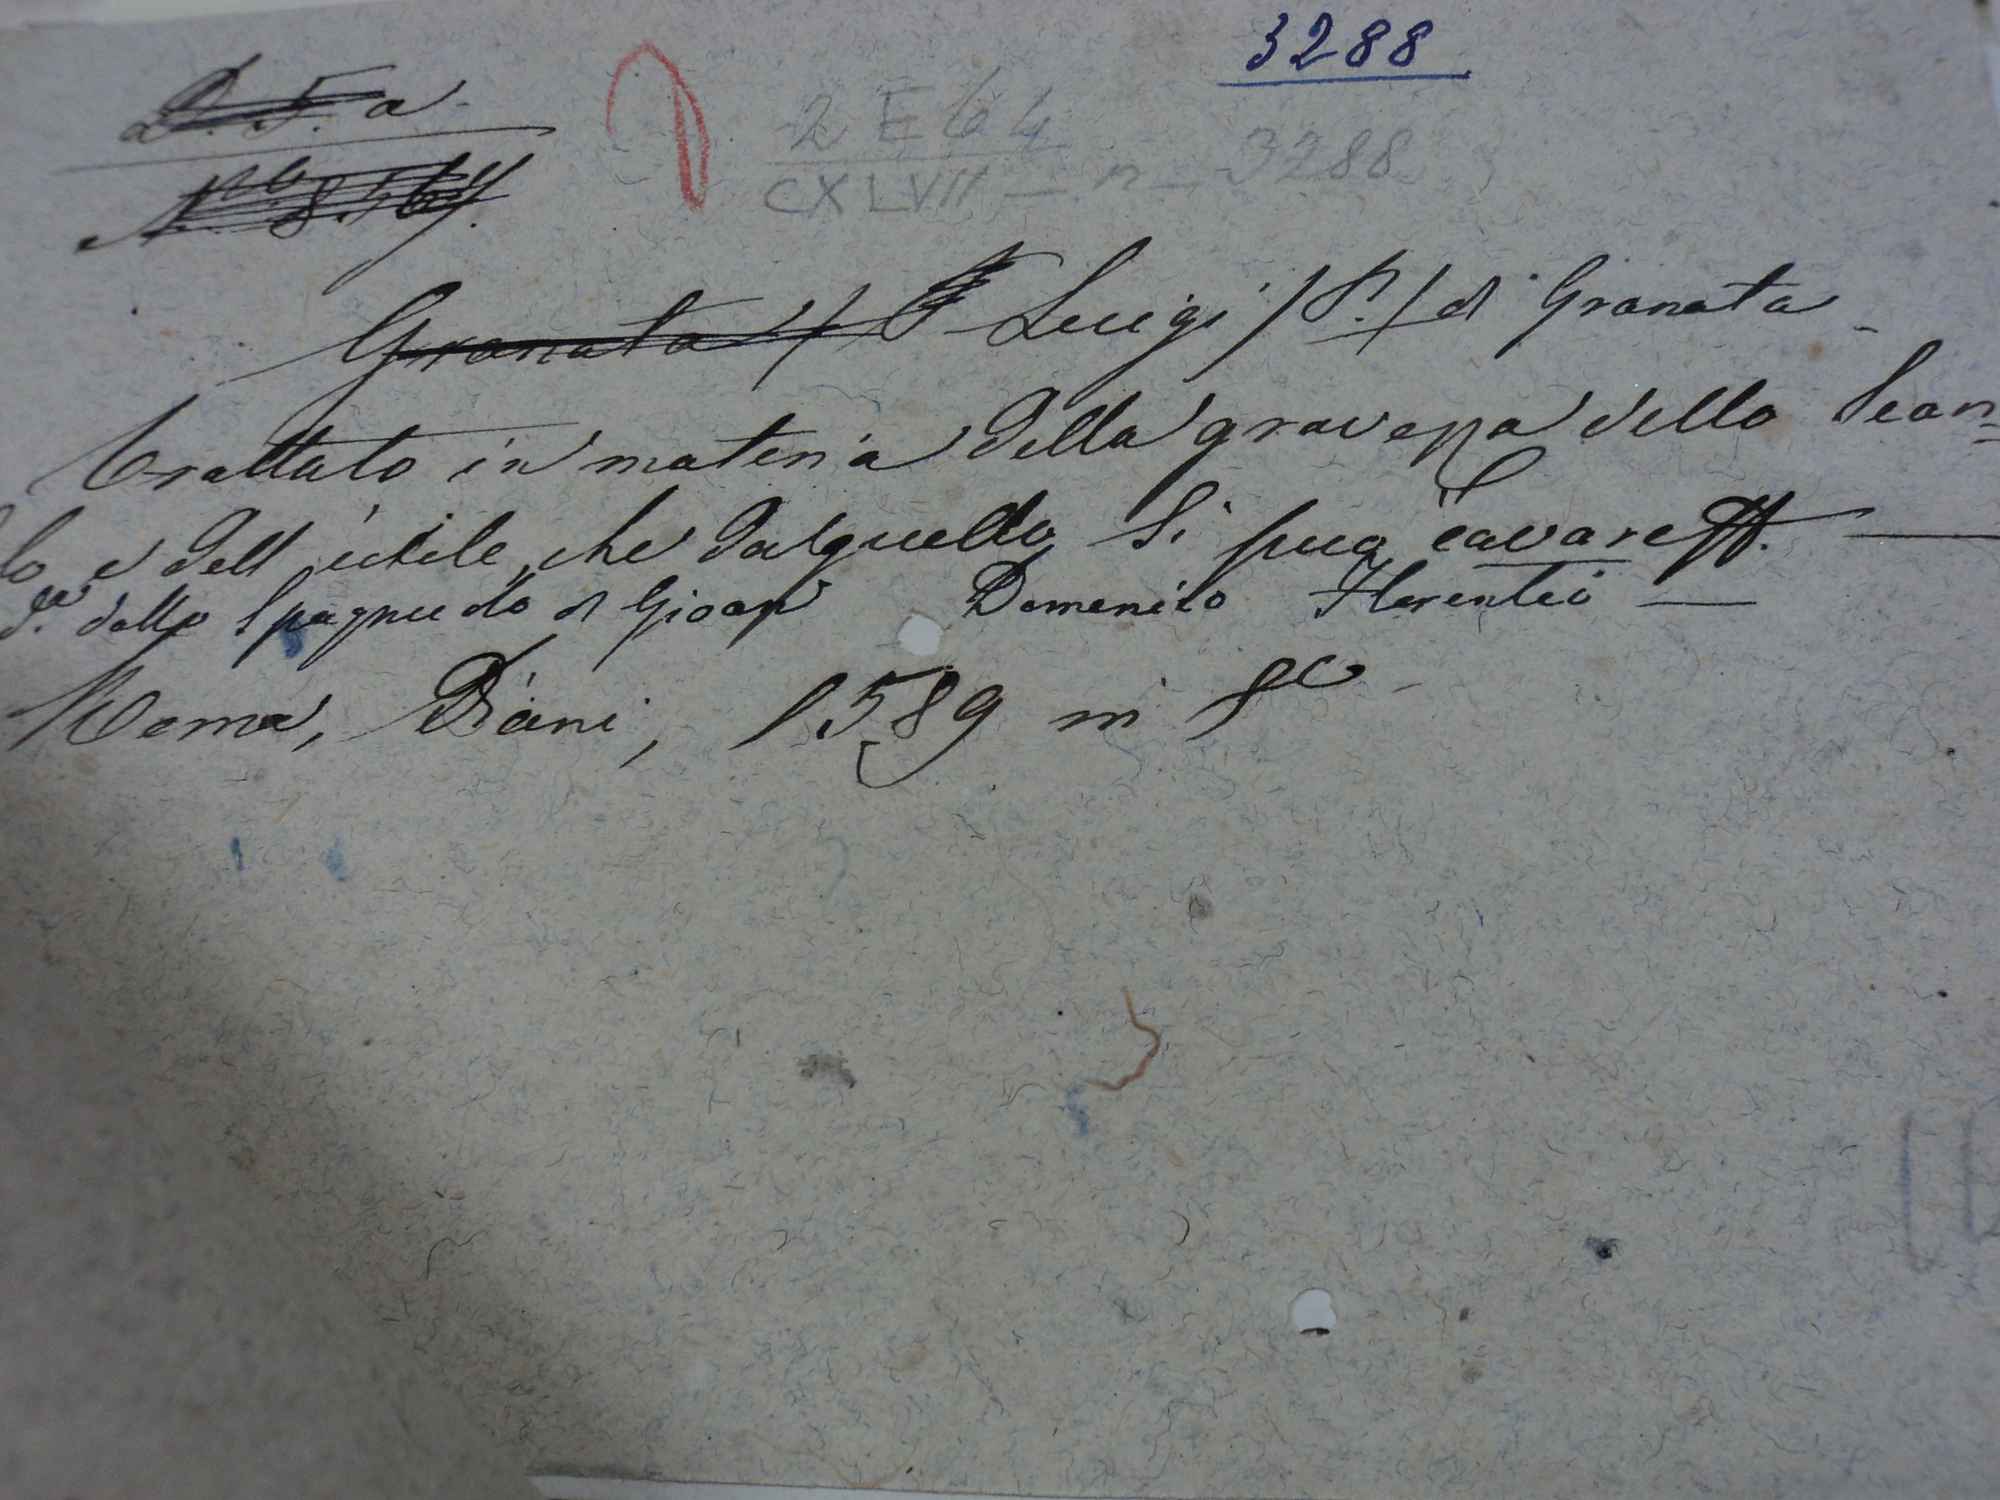 3288
D. F. a
2 E 64
CXLVII - n - 3288
Granata Luigi / P. / di Granata -
Trattato in materia della gravezza dello Scan=
lo e dell' utile che da quello si può cavare
d.a dallo Spagnuolo di Gioan Domenico Florentio —
Roma, Diani, 1589 in 8º